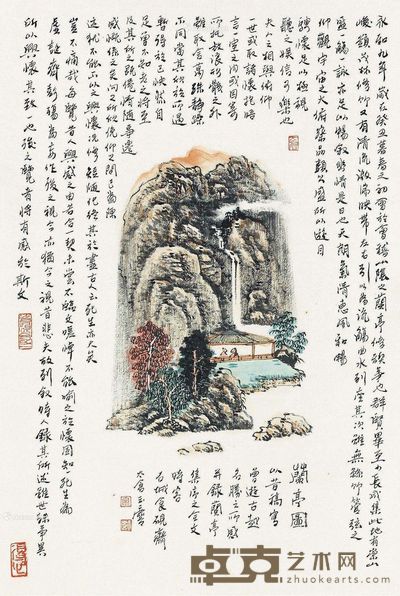 永和九年歲在癸丑暮春之初會於會稽山陰之蘭亭修禊事也群賢畢至少長咸集此地有崇山
峻嶺茂林修竹又有清流激湍映帶左右引以為流觴曲水列坐其次雖無絲竹管弦之
盛一觴一詠亦足以暢敘幽情是日也天朗氣清惠風和暢
仰觀宇宙之大俯察品類之盛所以遊目
騁懷足以極視
聽之娛信可樂也
夫人之相與俯仰
一世或取諸懷抱晤
言一室之內或因寄
所託放浪形骸之外
雖取舍萬殊靜躁
不同當其欣於所遇
暫得於己快然自
足曾不知老之將至
及其所之既倦情隨事遷
感慨係之矣向之所欣俛仰之間已為陳
迹猶不能不以之興懷況修短隨化終期於盡古人云死生亦大矣
豈不痛哉每覽昔人興感之由若合一契未嘗不臨文嗟悼不能喻之於懷固知死生為
虛誕齊彭殤為妄作後之視今亦猶今之視昔悲夫故列敘時人錄其所述雖世殊事異
所以興懷其致一也後之覽者將有感於斯文
蘭亭圖
以昔稿寫
曾遊古越
名勝之所感
并錄蘭亭
集序之全文
時客
石城食硯齋
卓克艺术网
zhuokearts.com